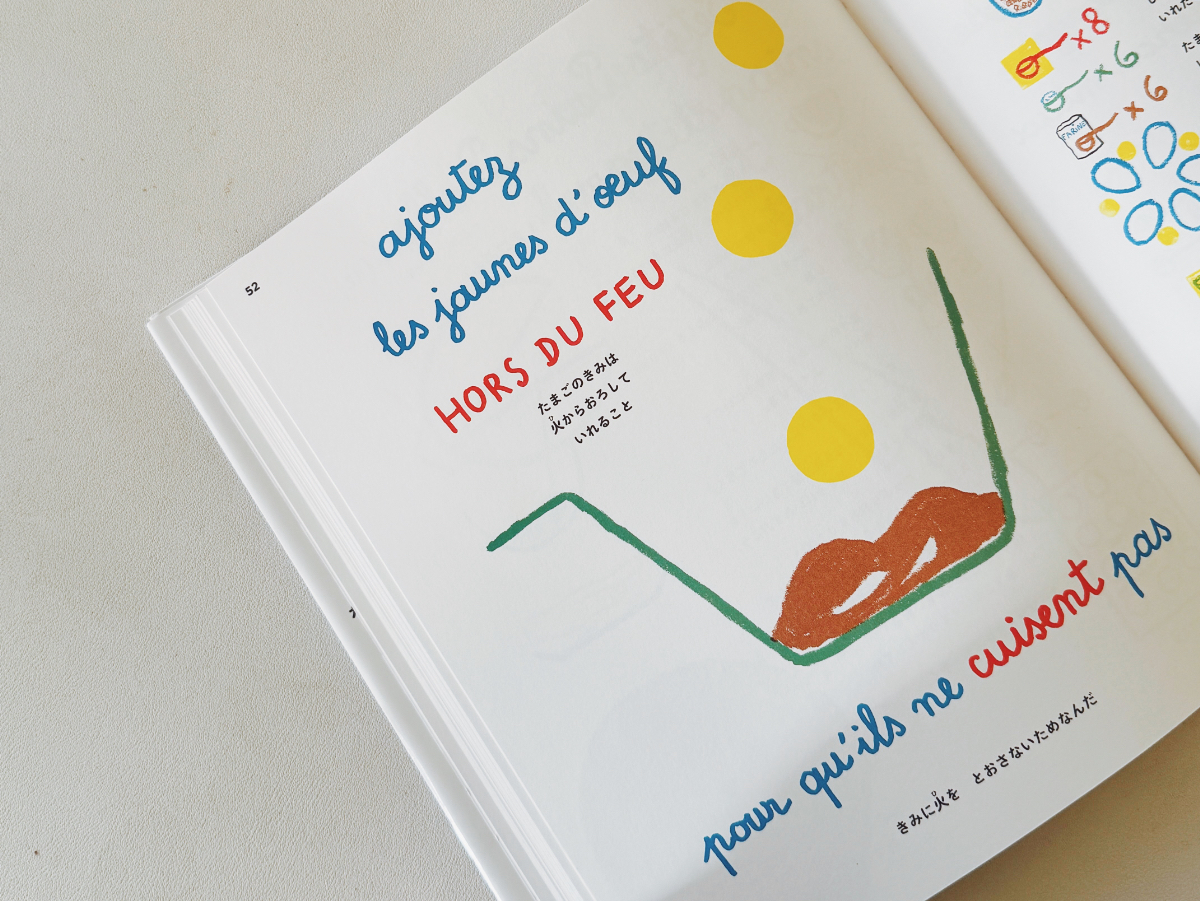 52
ajoutez
les jaunes d'œuf
HORS DU FEU
たまごのきみは
火からおろして
いれること
pour qu'ils ne cuisent pas
きみに火を とおさないためなんだ
×8
×6
FARINE ×6
いれた
たま